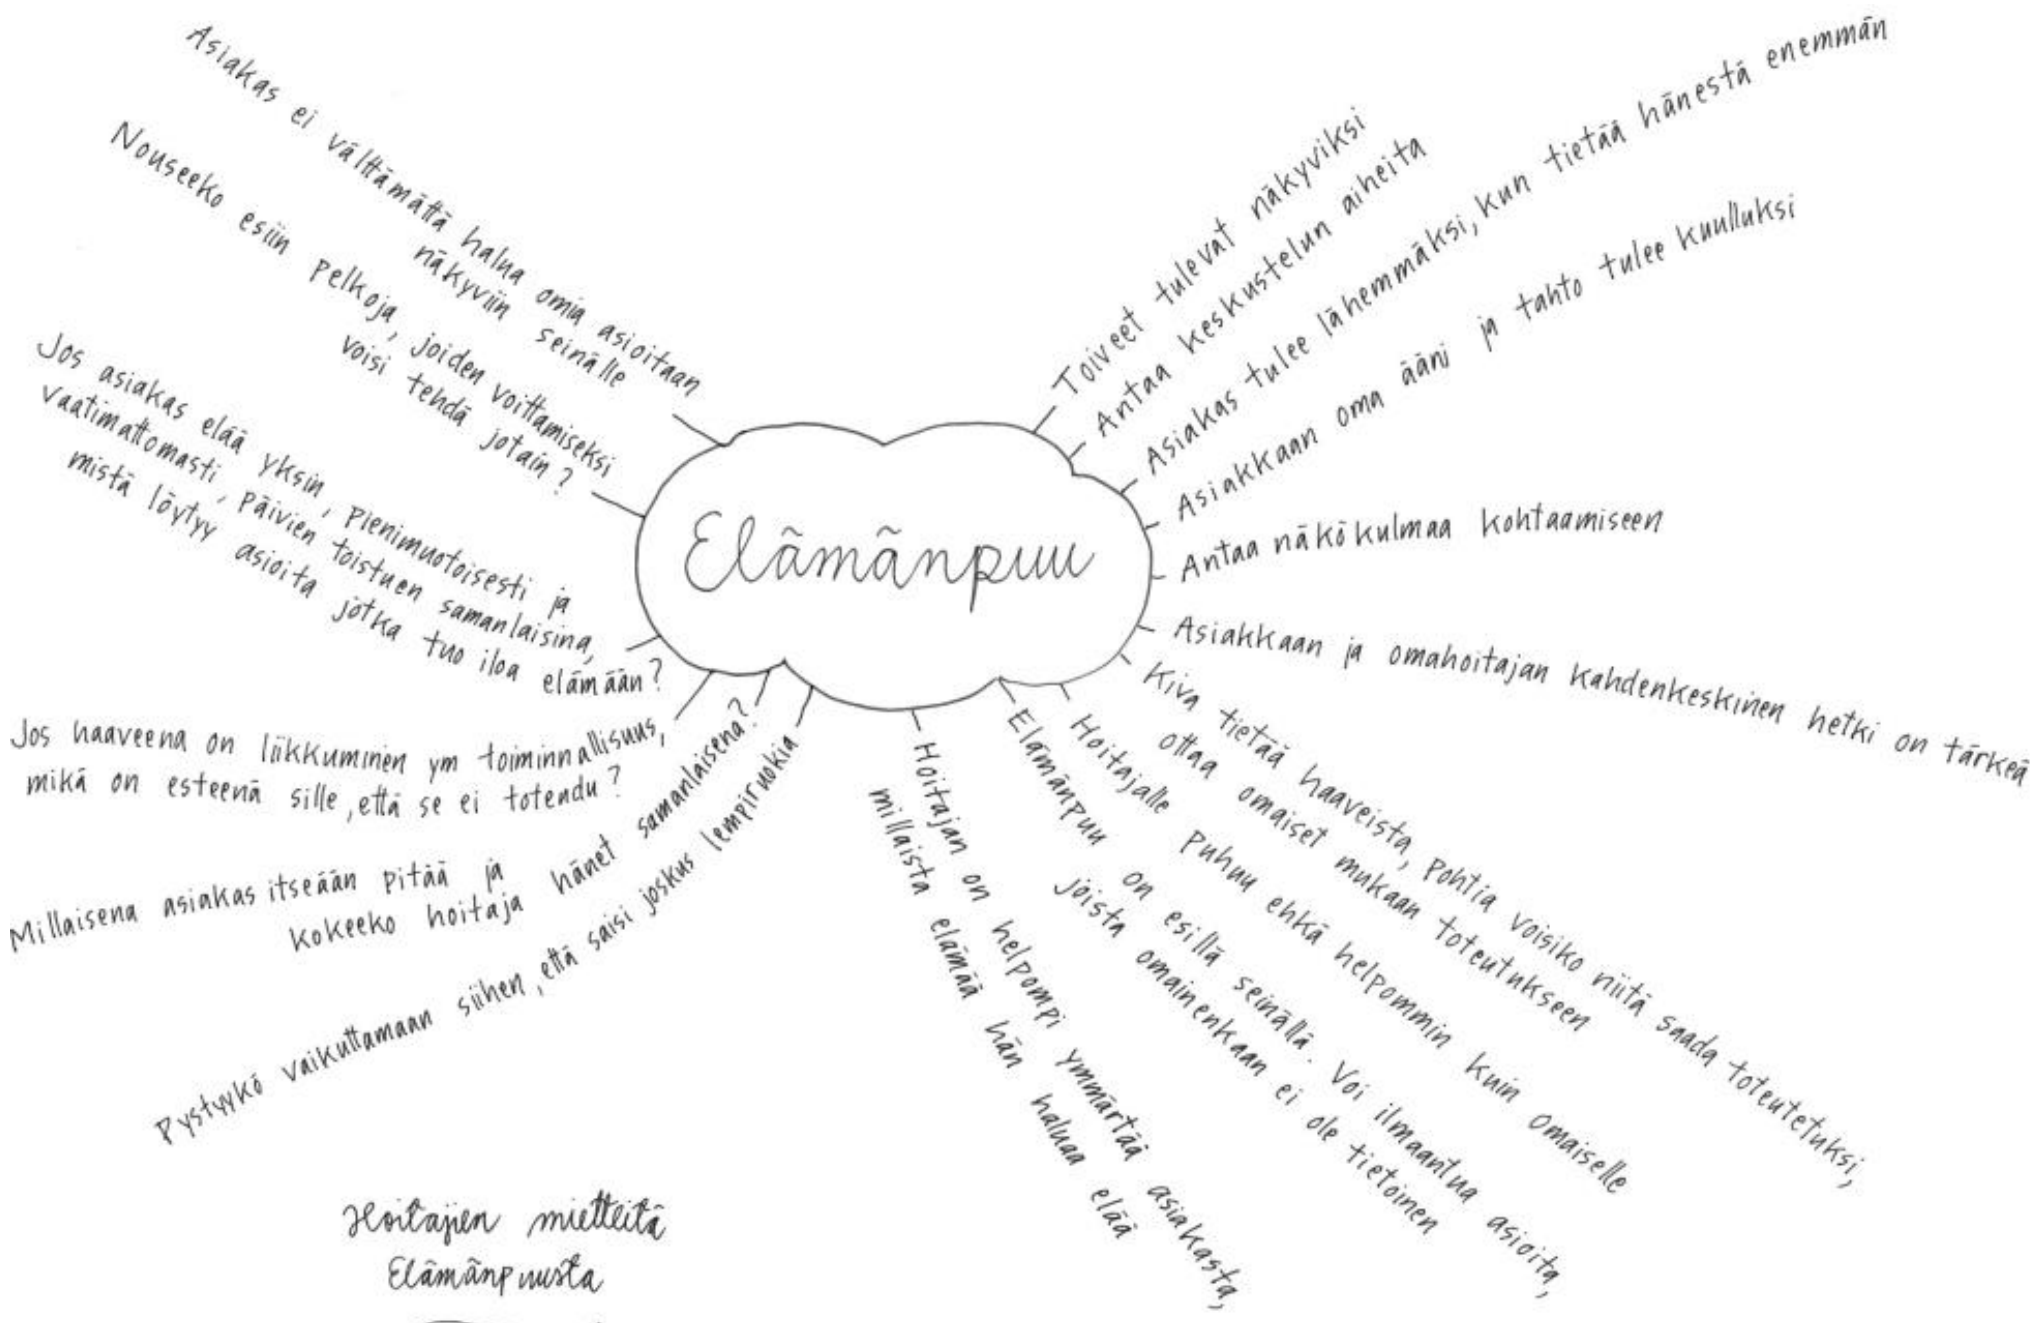 Asiakas ei välttämättä halua omia asioitaan
näkyviin seinälle
Nouseeko esiin pelkoja, joiden voittamiseksi
voisi tehdä jotain?
Jos asiakas elää yksin, pienimuotoisesti ja
vaatimattomasti, päivien toistuen samanlaisina,
mistä löytyy asioita jotka tuo iloa elämään?
Jos haaveena on liikkuminen ym toiminnallisuus,
mikä on esteenä sille, että se ei toteudu?
Millaisena asiakas itseään pitää ja
kokeeko hoitaja hänet samanlaisena?
Pystyykö vaikuttamaan siihen, että saisi joskus lempiruokia
Elämänpuu
Toiveet tulevat näkyviksi
Antaa keskustelun aiheita
Asiakas tulee lähemmäksi, kun tietää hänestä enemmän
Asiakkaan oma ääni ja tahto tulee kuulluksi
Antaa näkökulmaa kohtaamiseen
Asiakkaan ja omahoitajan kahdenkeskinen hetki on tärkeä
Kiva tietää haaveista, pohtia voisiko niitä saada toteutetuksi,
ottaa omaiset mukaan toteutukseen
Hoitajalle puhuu ehkä helpommin kuin omaiselle
Elämänpuu on esillä seinällä. Voi ilmaantua asioita,
joista omainenkaan ei ole tietoinen
Hoitajan on helpompi ymmärtää asiakasta,
millaista elämää hän haluaa elää
Hoitajien mietteitä
Elämänpuusta